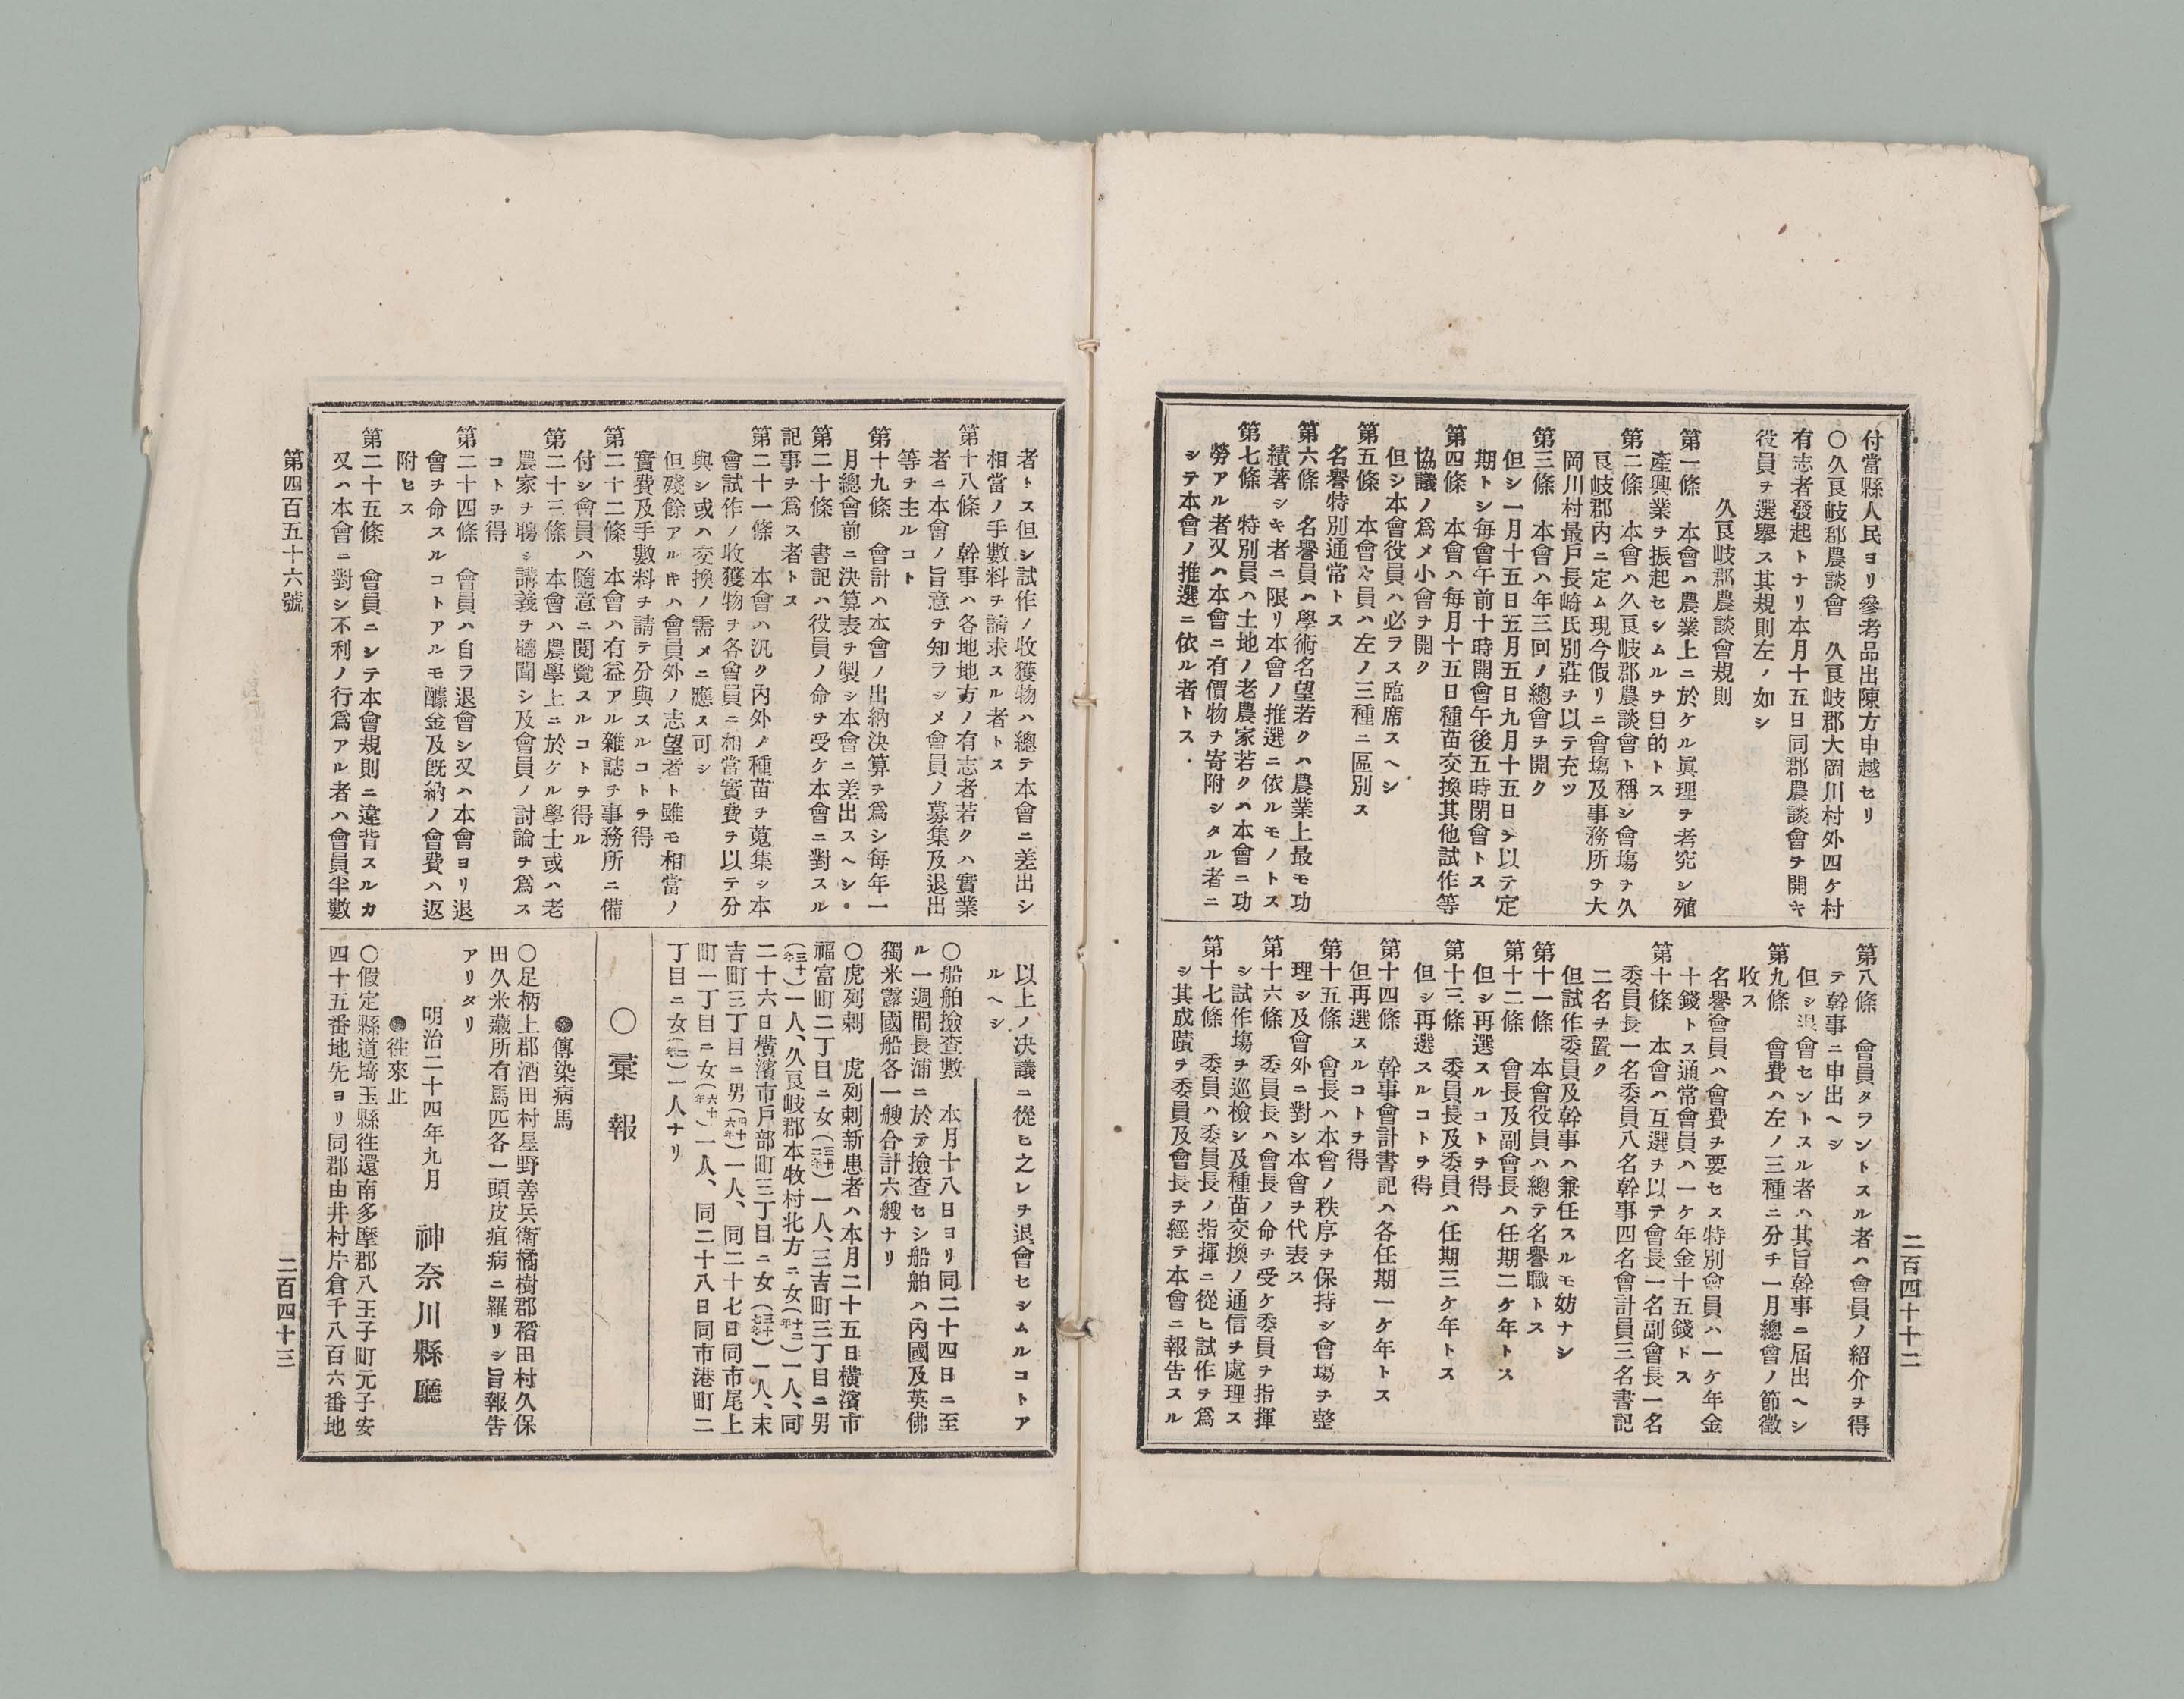 二百四十二
付當縣人民ヨリ參考品出陳方申越セリ
〇久良岐郡農談會　久良岐郡大岡川村外四ケ村
有志者發起トナリ本月十五日同郡農談會ヲ開キ
役員ヲ選擧ス其規則左ノ如シ
久良岐郡農談會規則
第一條　本會ハ農業上ニ於ケル眞理ヲ考究シ殖
産興業ヲ振起セシムルヲ目的トス
第二條　本會ハ久良岐郡農談會ト稱シ會塲ヲ久
良岐郡內ニ定ム現今假リニ會塲及事務所ヲ大
岡川村最戸長崎氏別莊ヲ以テ充ツ
第三條　本會ハ年三回ノ總會ヲ開ク
但シ一月十五日五月五日九月十五日ヲ以テ定
期トシ每會午前十時開會午後五時閉會トス
第四條　本會ハ每月十五日種苗交換其他試作等
協議ノ爲メ小會ヲ開ク
但シ本會役員ハ必ラス臨席スヘシ
第五條　本會々員ハ左ノ三種ニ區別ス
名譽特別通常トス
第六條　名譽員ハ學術名望若クハ農業上最モ功
績著シキ者ニ限リ本會ノ推選ニ依ルモノトス
第七條　特別員ハ土地ノ老農家若クハ本會ニ功
勞アル者又ハ本會ニ有價物ヲ寄附シタル者ニ
シテ本會ノ推選ニ依ル者トス
第八條　會員タラントスル者ハ會員ノ紹介ヲ得
テ幹事ニ申出ヘシ
但シ退會セントスル者ハ其旨幹事ニ屆出ヘシ
第九條　會費ハ左ノ三種ニ分チ一月總會ノ節徵
收ス
名譽會員ハ會費ヲ要セス特別會員ハ一ケ年金
十錢トス通常會員ハ一ケ年金十五錢トス
第十條　本會ハ互選ヲ以テ會長一名副會長一名
委員長一名委員八名幹事四名會計員三名書記
二名ヲ置ク
但試作委員及幹事ハ兼任スルモ妨ナシ
第十一條　本會役員ハ總テ名譽職トス
第十二條　會長及副會長ハ任期二ケ年トス
但シ再選スルコトヲ得
第十三條　委員長及委員ハ任期三ケ年トス
但シ再選スルコトヲ得
第十四條　幹事會計書記ハ各任期一ケ年トス
但再選スルコトヲ得
第十五條　會長ハ本會ノ秩序ヲ保持シ會塲ヲ整
理シ及會外ニ對シ本會ヲ代表ス
第十六條　委員長ハ會長ノ命ヲ受ケ委員ヲ指揮
シ試作塲ヲ巡檢シ及種苗交換ノ通信ヲ處理ス
第十七條　委員ハ委員長ノ指揮ニ從ヒ試作ヲ爲
シ其成蹟ヲ委員及會長ヲ經テ本會ニ報告スル
者トス但シ試作ノ收獲物ハ總テ本會ニ差出シ
相當ノ手數料ヲ請求スル者トス
第十八條　幹事ハ各地地方ノ有志者若クハ實業
者ニ本會ノ旨意ヲ知ラシメ會員ノ募集及退出
等ヲ主ルコト
第十九條　會計ハ本會ノ出納決算ヲ爲シ每年一
月總會前ニ決算表ヲ製シ本會ニ差出スヘシ
第二十條　書記ハ役員ノ命ヲ受ケ本會ニ對スル
記事ヲ爲ス者トス
第二十一條　本會ハ汎ク內外ノ種苗ヲ蒐集シ本
會試作ノ收獲物ヲ各會員ニ相當實費ヲ以テ分
與シ或ハ交換ノ需メニ應ス可シ
但殘餘アルキハ會員外ノ志望者ト雖モ相當ノ
實費及手數料ヲ請テ分與スルコトヲ得
第二十二條　本會ハ有益アル雜誌ヲ事務所ニ備
付シ會員ハ隨意ニ閱覽スルコトヲ得ル
第二十三條　本會ハ農學上ニ於ケル學士或ハ老
農家ヲ聘シ講義ヲ聽聞シ及會員ノ討論ヲ爲ス
コトヲ得
第二十四條　會員ハ自ラ退會シ又ハ本會ヨリ退
會ヲ命スルコトアルモ醵金及旣納ノ會費ハ返
附セス
第二十五條　會員ニシテ本會規則ニ違背スルカ
又ハ本會ニ對シ不利ノ行爲アル者ハ會員半數
以上ノ決議ニ從ヒ之レヲ退會セシムルコトア
ルヘシ
〇船舶撿查數　本月十八日ヨリ同二十四日ニ至
ル一週間長浦ニ於テ撿查セシ船舶ハ內國及英佛
獨米露國船各一艘合計六艘ナリ
〇虎列剌　虎列剌新患者ハ本月二十五日橫濱市
福富町二丁目ニ女（三十二年）一人、三吉町三丁目ニ男
（三十年）一人、久良岐郡本牧村北方ニ女（十二年）一人、同
二十六日橫濱市戸部町三丁目ニ女（三十七年）一人、末
吉町三丁目ニ男（四十六年）一人、同二十七日同市尾上
町一丁目ニ女（六十年）一人、同二十八日同市港町二
丁目ニ女（二年）一人ナリ
〇彙報
●傳染病馬
〇足柄上郡酒田村星野善兵衛橘樹郡稻田村久保
田久米藏所有馬匹各一頭皮疽病ニ羅リシ旨報告
アリタリ
明治二十四年九月　神奈川縣廳
●徃來止
〇假定縣道埼玉縣徃還南多摩郡八王子町元子安
四十五番地先ヨリ同郡由井村片倉千八百六番地
第四百五十六號
二百四十三